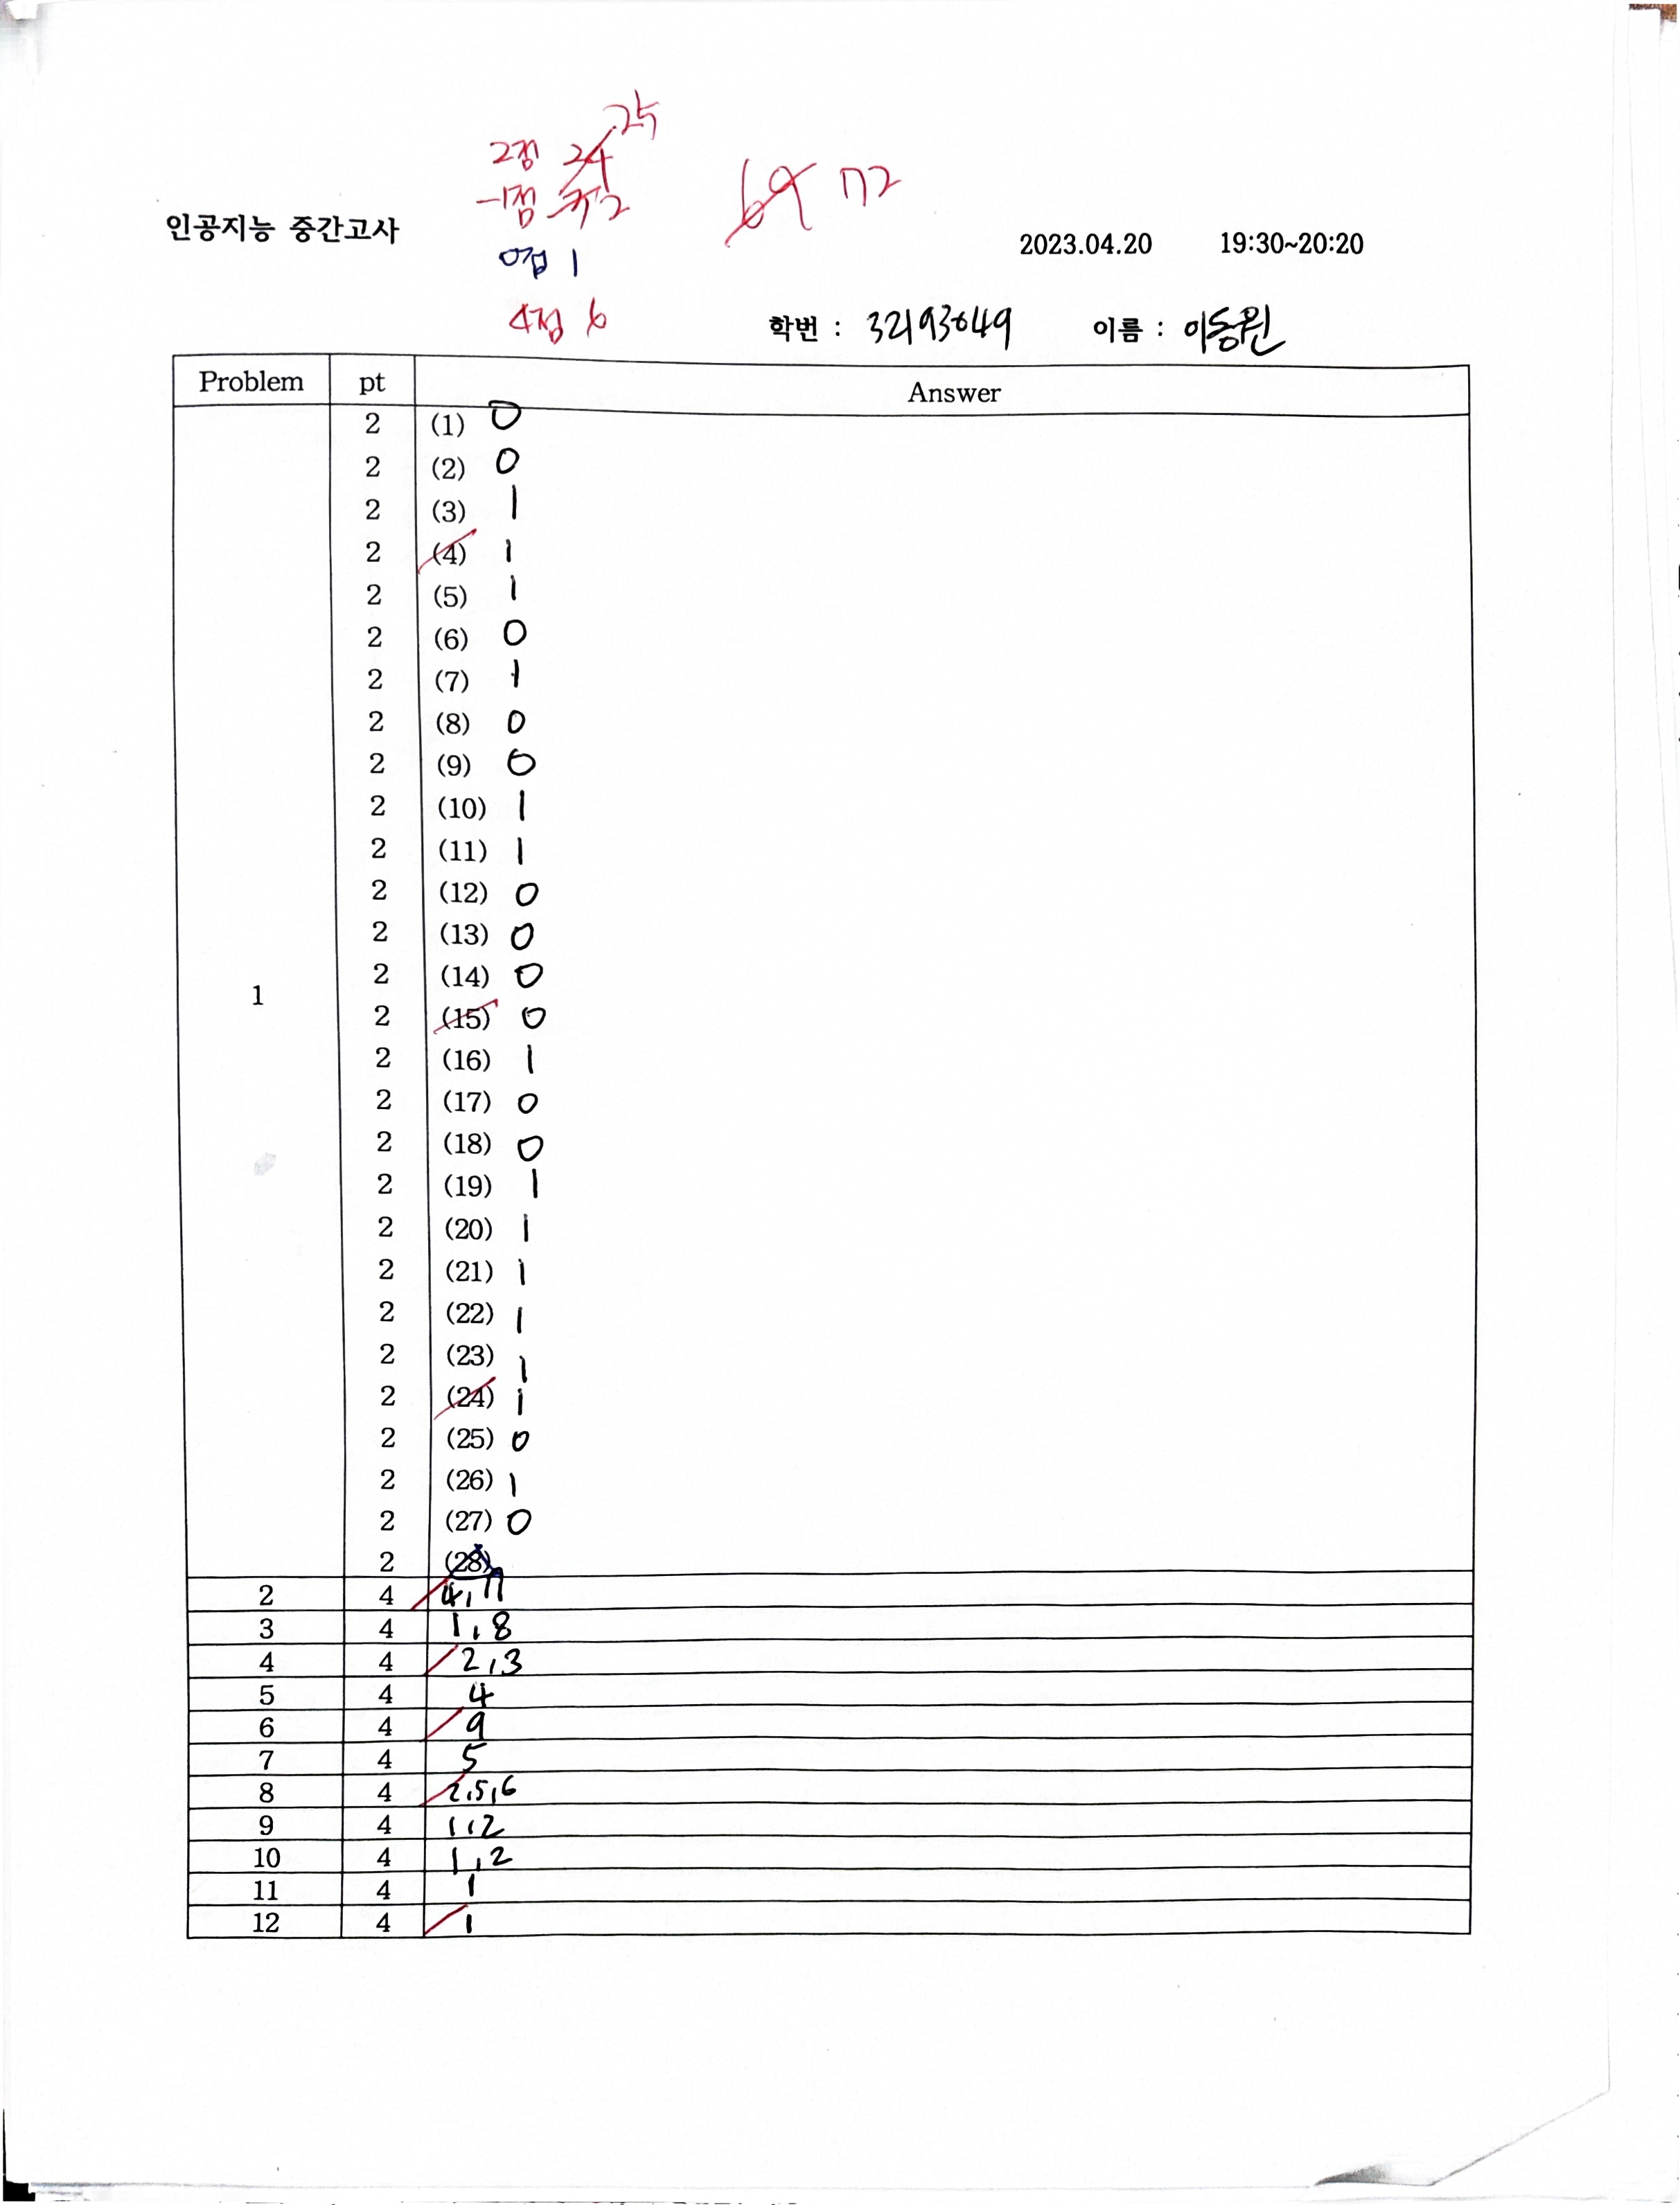 2점 24 25
-1점 3 2
69 72
인공지능 중간고사
2023.04.20 19:30~20:20
0점 1
4점 6
학번 : 32193049 이름 : 이동원
Problem pt Answer
2 (1) 0
2 (2) 0
2 (3) 1
2 (4) 1
2 (5) 1
2 (6) 0
2 (7) 1
2 (8) 0
2 (9) 0
2 (10) 1
2 (11) 1
2 (12) 0
2 (13) 0
2 (14) 0
1 2 (15) 0
2 (16) 1
2 (17) 0
2 (18) 0
2 (19) 1
2 (20) 1
2 (21) 1
2 (22) 1
2 (23) 1
2 (24) 1
2 (25) 0
2 (26) 1
2 (27) 0
2 (28)
2 4 4,7
3 4 1,8
4 4 2,3
5 4 4
6 4 9
7 4 5
8 4 2,5,6
9 4 1,2
10 4 1,2
11 4 1
12 4 1